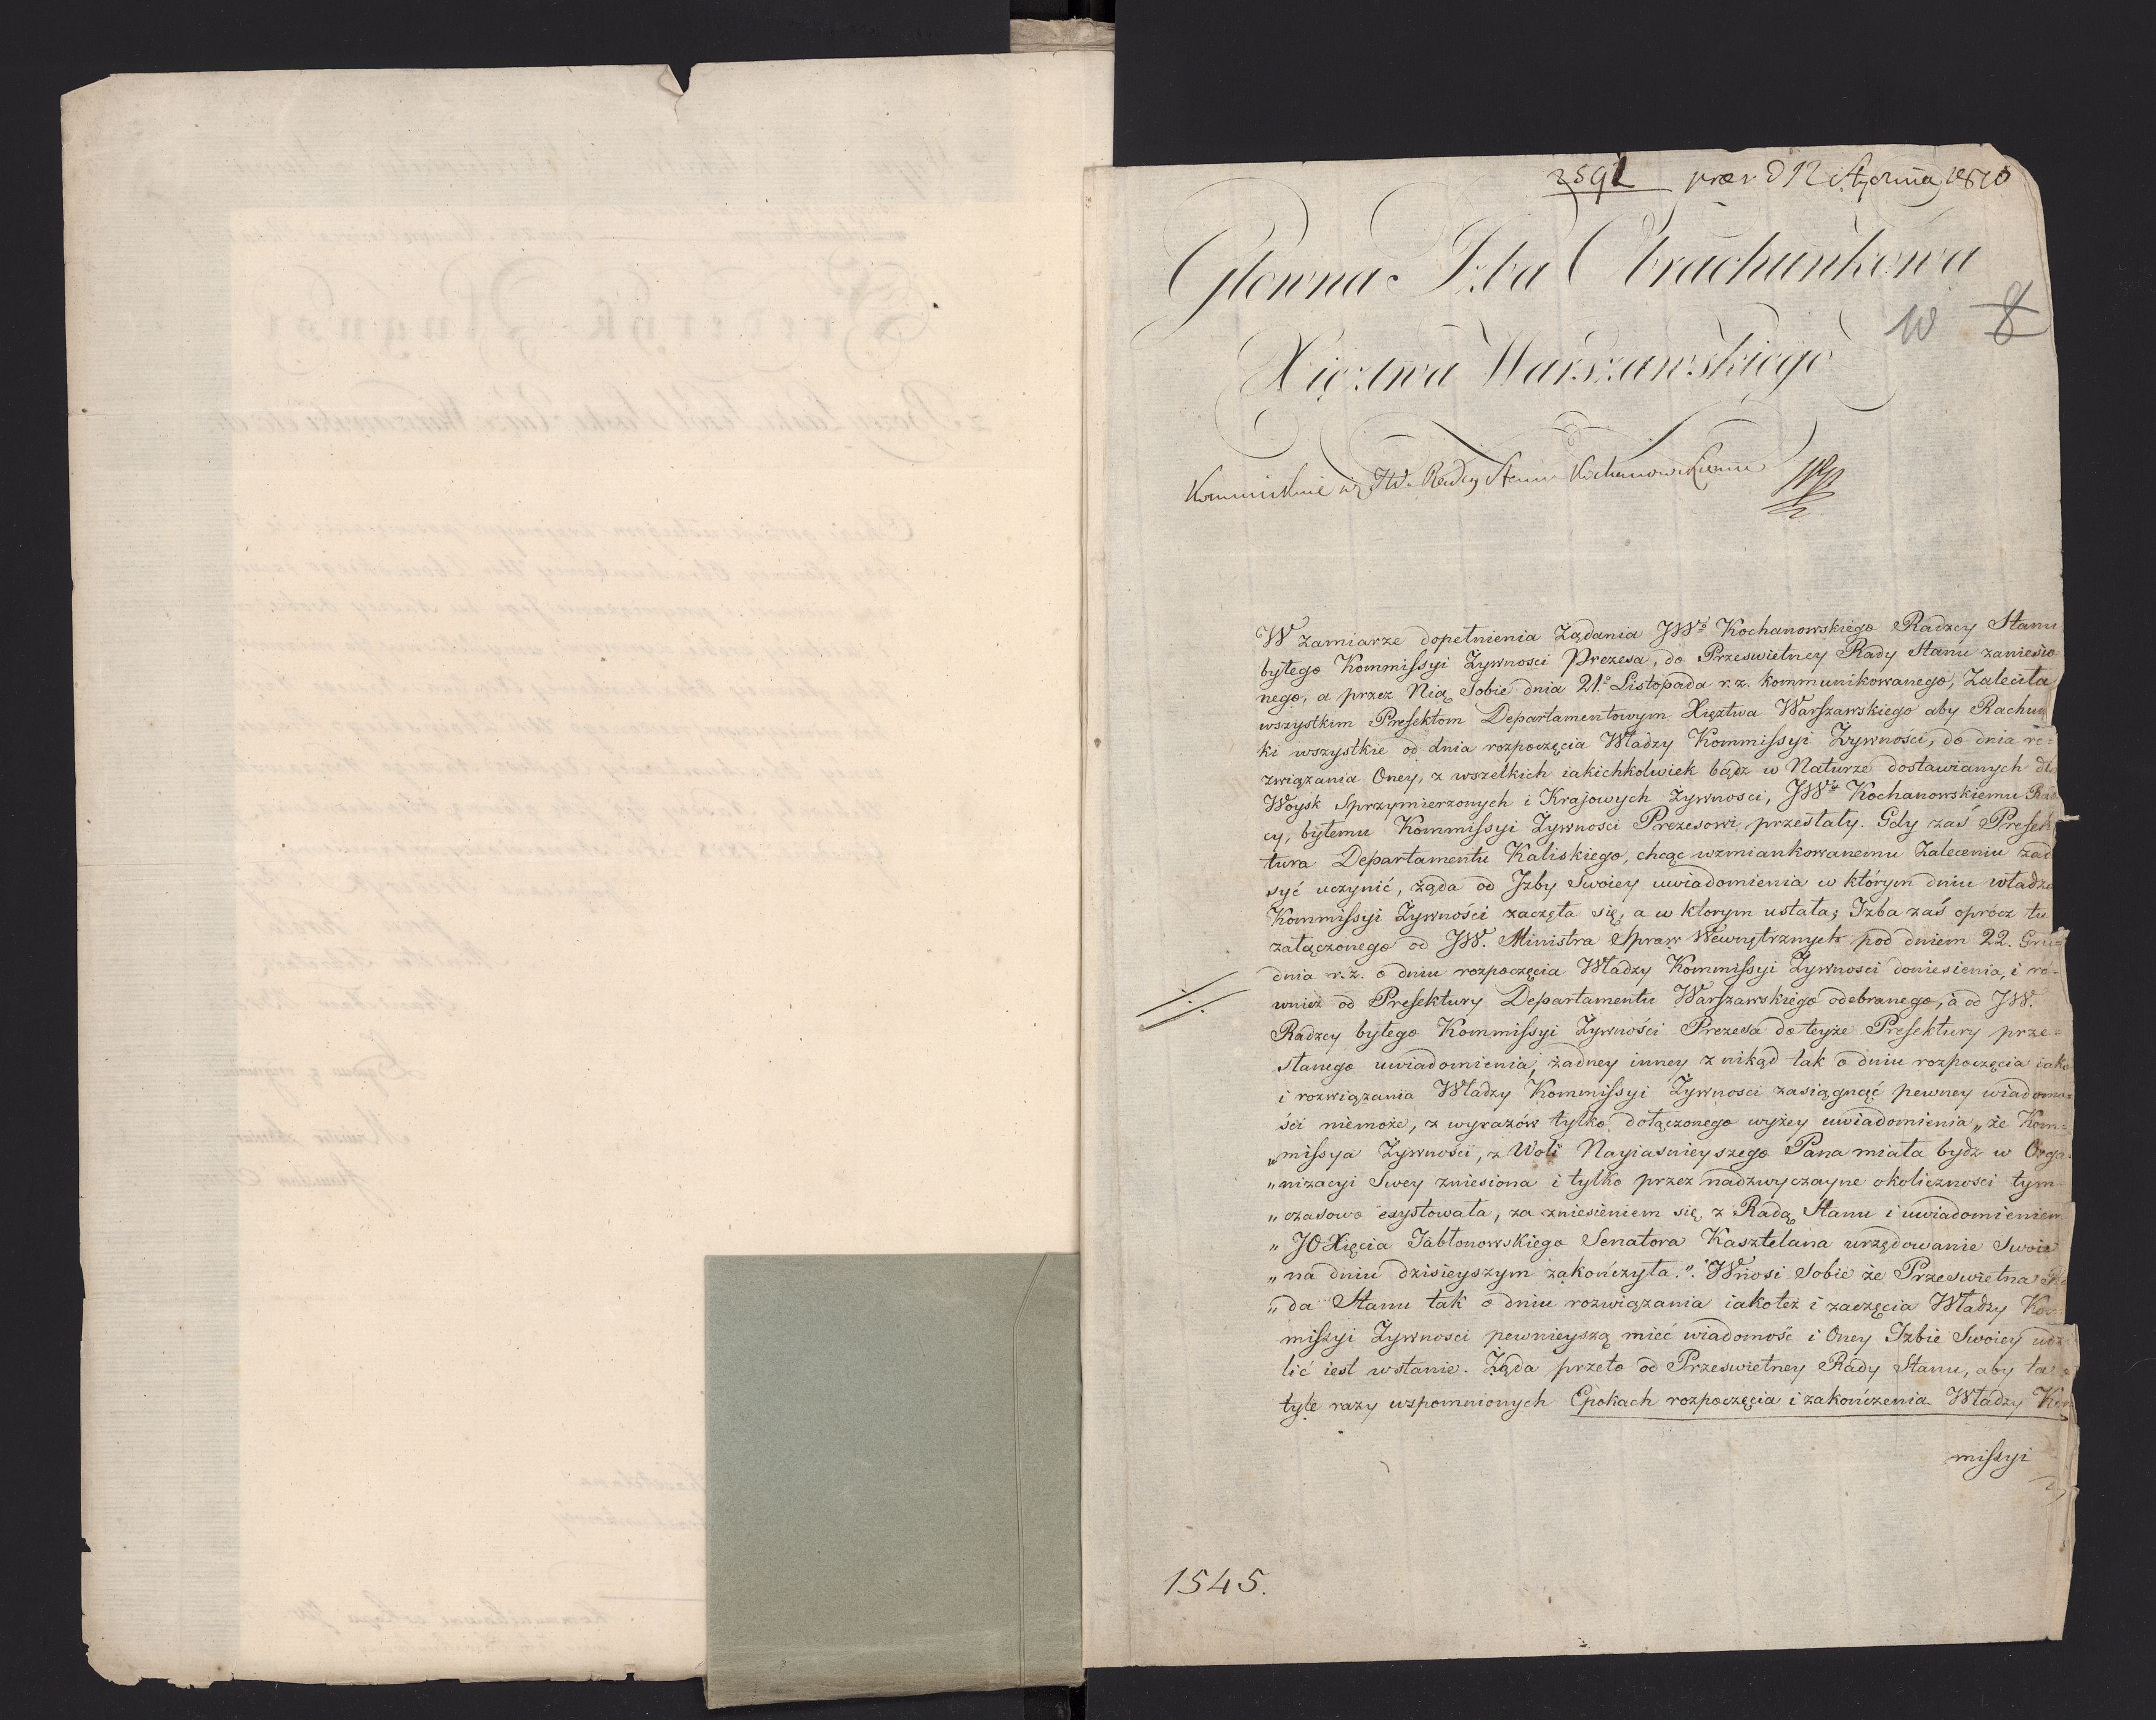 2592 præs d 12 Stycznia 1810
Głowna Izba Obrachunkowa
10 8
Xięztwa Warszawskiego
JW. Radcy Stanu Kochanowskiemu
W zamiarze dopełnienia Żądania JWo Kochanowskiego Radzcy Stanu
byłego Kommissyi Żywnosci Prezesa, do Przeswietney Rady Stanu zaniesio
nego, a przez Nią Sobie dnia 21.o Listopada r.z. kommunikowanego, Zaleciła
wszystkim Prefektom Departamentowym Xięztwa Warszawskiego aby Rachun
ki wszystkie od dnia rozpoczęcia Władzy Kommissyi Żywności, do dnia ro=
związania Oney, z wszelkich iakichkolwiek bądz w Naturze dostawianych dla
Woysk Sprzymierzonych i Krajowych Żywnosci, JWu Kochanowskiemu Rad
cy, byłemu Kommissyi Żywnosci Prezesowi przesłały. Gdy zaś Prefek
tura Departamentu Kaliskiego, chcąc wzmiankowanemu Zaleceniu zad
syć uczynić, żąda od Izby Swoiey uwiadomienia w którym dniu władza
Kommissyi Żywności zaczęła się, a w ktorym ustała; Izba zaś oprócz tu
załączonego od JW. Ministra Spraw Wewnętrznych pod dniem 22. Gru=
dnia r.z. o dniu rozpoczęcia Władzy Kommissyi Żywnosci doniesienia, i ró-
wnież od Prefektury Departamentu Warszawskiego odebranego, a od JW.
Radzcy byłego Kommissyi Żywności Prezesa do teyże Prefektury prze=
słanego uwiadomienia, żadney inney znikąd tak o dniu rozpoczęcia iako
i rozwiązania Władzy Kommissyi Żywnosci zasiągnąć pewney wiadomo=
ści niemoże, z wyrazów tylko dołączonego wyżey uwiadomienia „że Kom=
„missya Żywności, z Woli Nayiasnieyszego Pana miała bydz w Orga=
„nizacyi Swey zniesiona i tylko przez nadzwyczayne okoliczności tym=
„czasowo exystowała, za zniesieniem się z Radą Stanu i uwiadomieniem
„JO Xięcia Jabłonowskiego Senatora Kasztelana urzędowanie Swoie
„na dniu dzisieyszym zakończyła.". Wnosi Sobie że Przeswietna Ra
„da Stanu tak o dniu rozwiązania iakoteż i zaczęcia Władzy Kom
missyi Żywnosci pewnieyszą mieć wiadomość i Oney Izbie Swoiey udz
lić iest wstanie. Żąda przeto od Przeswietney Rady Stanu, aby ta o
tyle razy wspomnionych Epokach rozpoczęcia i zakończenia Władzy Kom
missyi
1545.